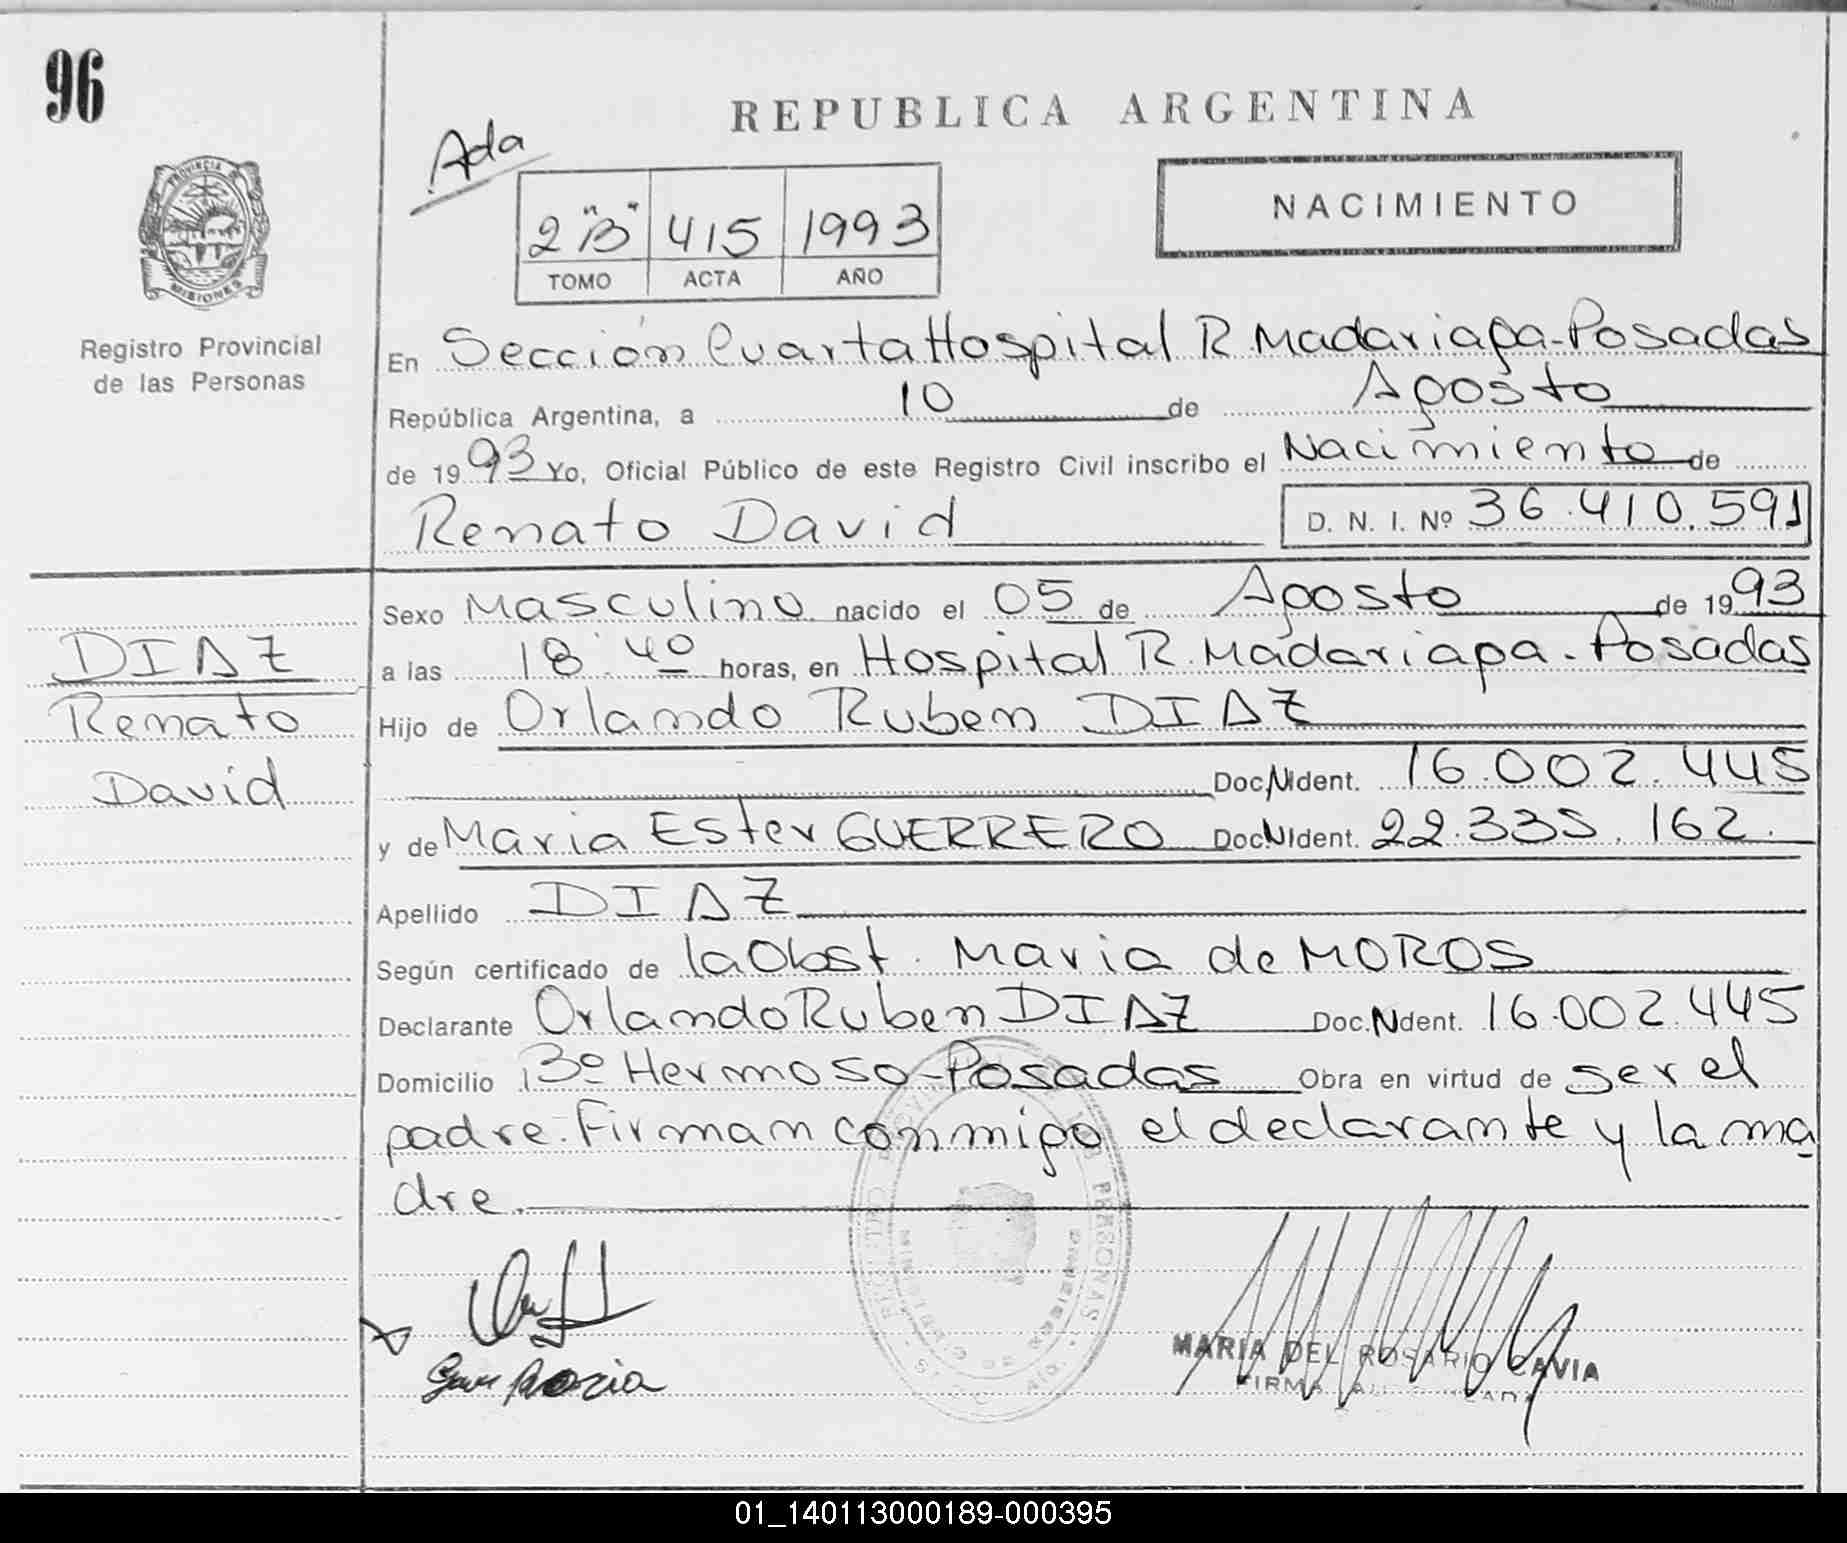 96
REPUBLICA ARGENTINA
Ada
NACIMIENTO
2 "B" 415 1993
TOMO ACTA AÑO
PROVINCIA D
MISIONES
Registro Provincial
de las Personas
En Sección Cuarta Hospital R Madariaga-Posadas
República Argentina, a 10 de Agosto
de 1993 Yo, Oficial Público de este Registro Civil inscribo el Nacimiento de
Renato David D. N. I. Nº 36.410.591
Sexo Masculino nacido el 05 de Agosto de 1993
DIAZ
a las 18 40 horas, en Hospital R. Madariaga - Posadas
Renato
Hijo de Orlando Ruben DIAZ
David
Doc. N Ident. 16.002.445
y de Maria Ester GUERRERO Doc N Ident. 22.335.162.
Apellido DIAZ
Según certificado de la Obst. Maria de MOROS
Declarante Orlando Ruben DIAZ Doc. N dent. 16.002.445
Domicilio Bº Hermoso-Posadas Obra en virtud de ser el
padre. Firman conmigo el declarante y la ma
dre.
PERSONAS
MARIA DEL ROSARIO CAVIA
FIRMA
01_140113000189-000395